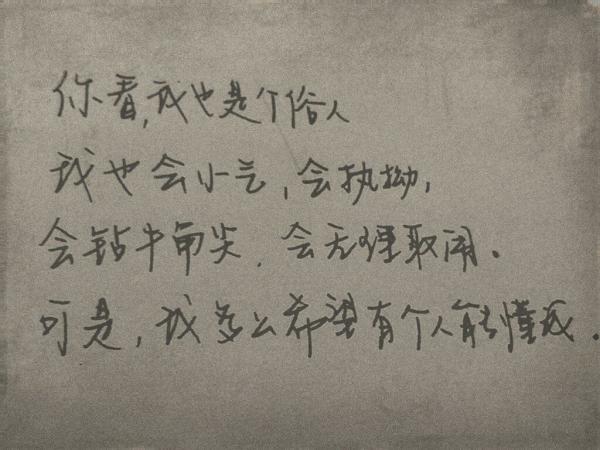 你看,我也是个俗人
我也会小气,会执拗,
会钻牛角尖.会无理取闹.
可是,我多么希望有个人能懂我.